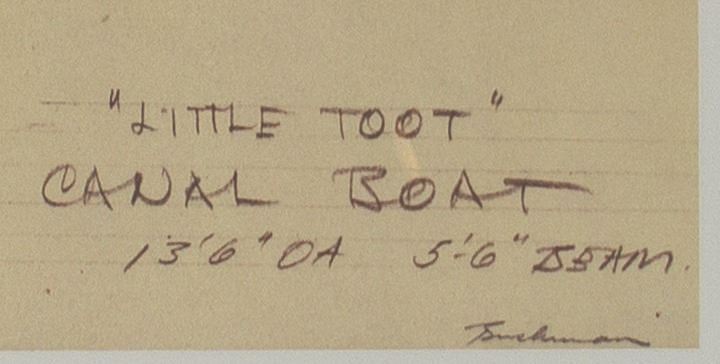 "LITTLE TOOT"
CANAL BOAT
13'6" OA 5'-6" BEAM.